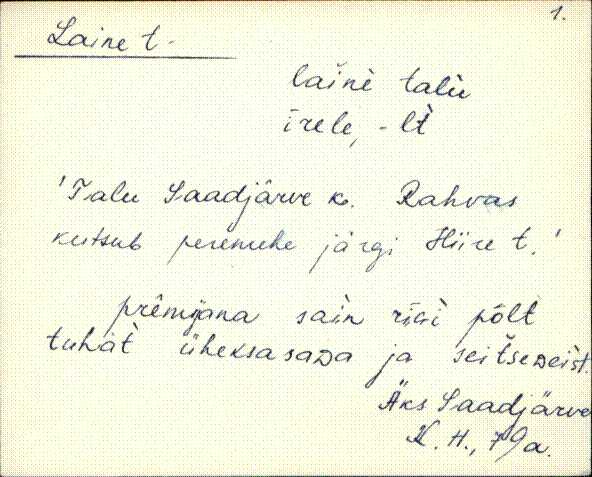 1.
Laine t.
laǐnè talù
īrele, -lt̀
'Talu Saadjärve k. Rahvas
kutsub peremehe järgi Hiire t.'
prèmijana sain rīɢi põlt
tuhàt üheksasaᴅa ja seitseᴅeist.
Äks Saadjärve
H., 79a.